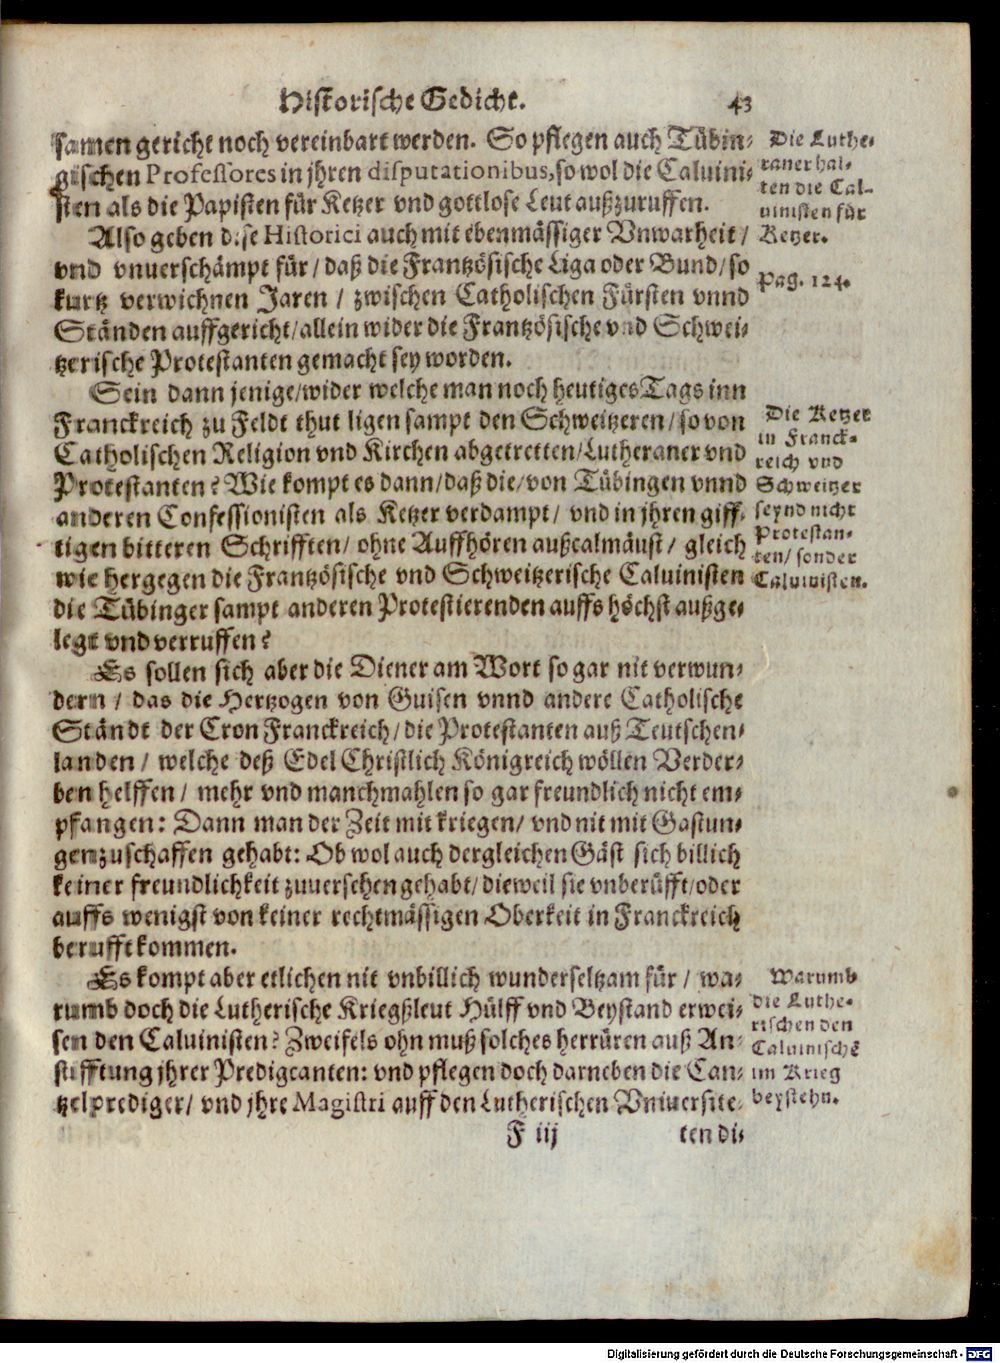 Historische Gedicht. 43
samen gericht noch vereinbart werden. So pflegen auch Tübin-
gischen Professores in jhren disputationibus, so wol die Caluini-
sten als die Papisten für Ketzer vnd gottlose Leut außzuruffen.
Also geben dise Historici auch mit ebenmässiger Vnwarheit /
vnd vnuerschämpt für / daß die Frantzösische Liga oder Bund / so
kurtz verwichnen Jaren / zwischen Catholischen Fürsten vnnd
Ständen auffgericht / allein wider die Frantzösische vnd Schwei-
tzerische Protestanten gemacht sey worden.
Sein dann jenige / wider welche man noch heutiges Tags inn
Franckreich zu Feldt thut ligen sampt den Schweitzeren / so von
Catholischen Religion vnd Kirchen abgetretten / Lutheraner vnd
Protestanten? Wie kompt es dann / daß die / von Tübingen vnnd
anderen Confessionisten als Ketzer verdampt / vnd in jhren giff-
tigen bitteren Schrifften / ohne Auffhören außcalmäust / gleich
wie hergegen die Frantzösische vnd Schweitzerische Caluinisten
die Tübinger sampt anderen Protestierenden auffs höchst außge-
legt vnd verruffen?
Es sollen sich aber die Diener am Wort so gar nit verwun-
dern / das die Hertzogen von Guisen vnnd andere Catholische
Ständt der Cron Franckreich / die Protestanten auß Teutschen-
landen / welche deß Edel Christlich Königreich wöllen Verder-
ben helffen / mehr vnd manchmahlen so gar freundlich nicht em-
pfangen: Dann man der Zeit mit kriegen / vnd nit mit Gastun-
gen zuschaffen gehabt: Ob wol auch dergleichen Gäst sich billich
keiner freundlichkeit zuuersehen gehabt / dieweil sie vnberüfft / oder
auffs wenigst von keiner rechtmässigen Oberkeit in Franckreich
berufft kommen.
Es kompt aber etlichen nit vnbillich wunderseltzam für / wa-
rumb doch die Lutherische Kriegßleut Hülff vnd Beystand erwei-
sen den Caluinisten? Zweifels ohn muß solches herrüren auß An-
stifftung jhrer Predigcanten: vnd pflegen doch darneben die Can-
tzelprediger / vnd jhre Magistri auff den Lutherischen Vniuersite-
F iij ten di-
Die Luthe-
raner hal-
ten die Cal-
uinisten für
Ketzer.
Pag. 124.
Die Ketzer
in Franck-
reich vnd
Schweitzer
seynd nicht
Protestan-
ten / sonder
Caluinisten.
Warumb
die Luthe-
rischen den
Caluinischē
im Krieg
beystehn.
Digitalisierung gefördert durch die Deutsche Forschungsgemeinschaft - DFG